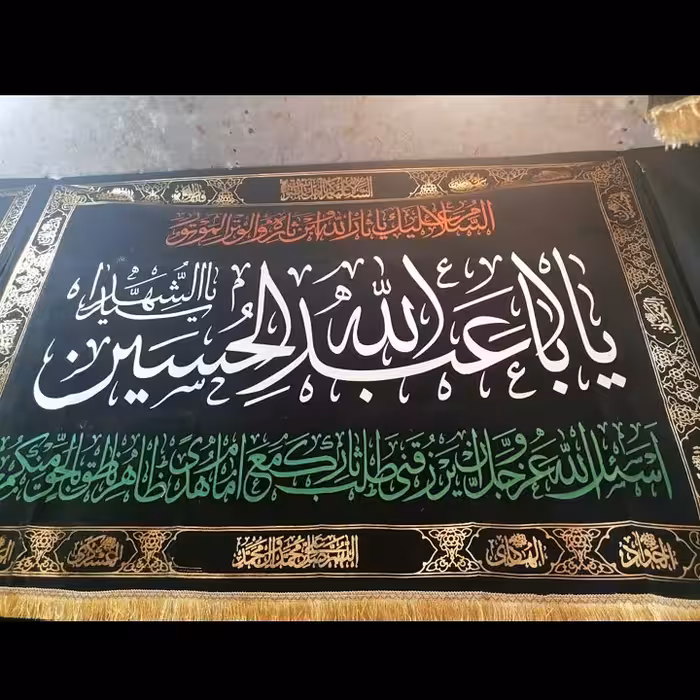 السلام عليك يا ثار الله وابن ثاره والوتر الموتور
يا ابا عبد الله الحسين
يا سيد الشهداء
اسئل الله عز وجل ان يرزقني طلب ثارك مع امام هدى ظاهر ناطق بالحق منكم
اللهم صل على محمد وال محمد